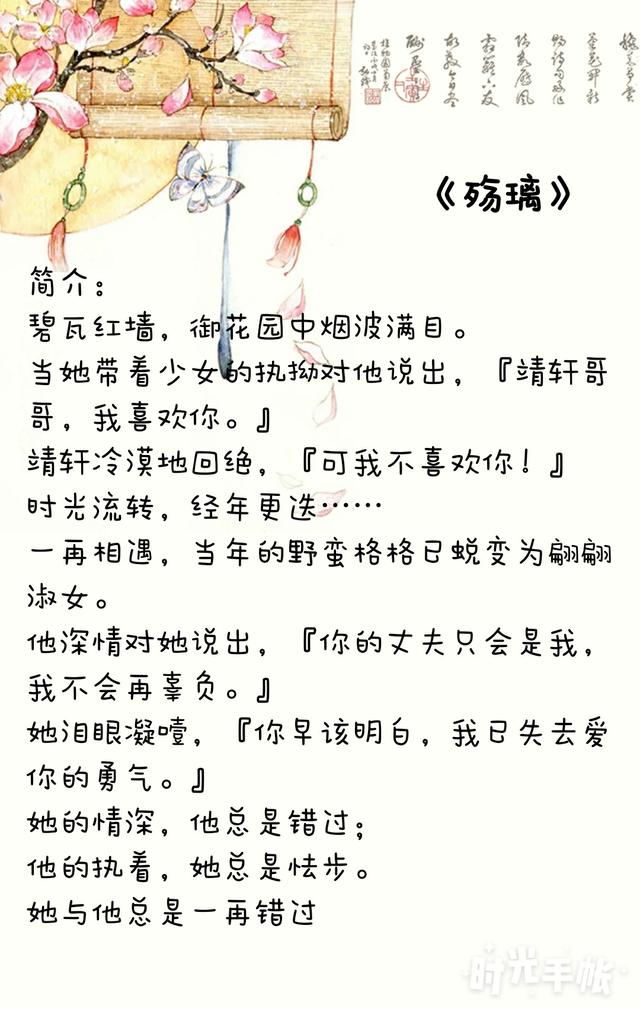 《殇璃》
简介：
碧瓦红墙，御花园中烟波满目。
当她带着少女的执拗对他说出，『靖轩哥
哥，我喜欢你。』
靖轩冷漠地回绝，『可我不喜欢你！』
时光流转，经年更迭……
一再相遇，当年的野蛮格格已蜕变为翩翩
淑女。
他深情对她说出，『你的丈夫只会是我，
我不会再辜负。』
她泪眼凝噎，『你早该明白，我已失去爱
你的勇气。』
她的情深，他总是错过；
他的执着，她总是怯步。
她与他总是一再错过
时光手帐